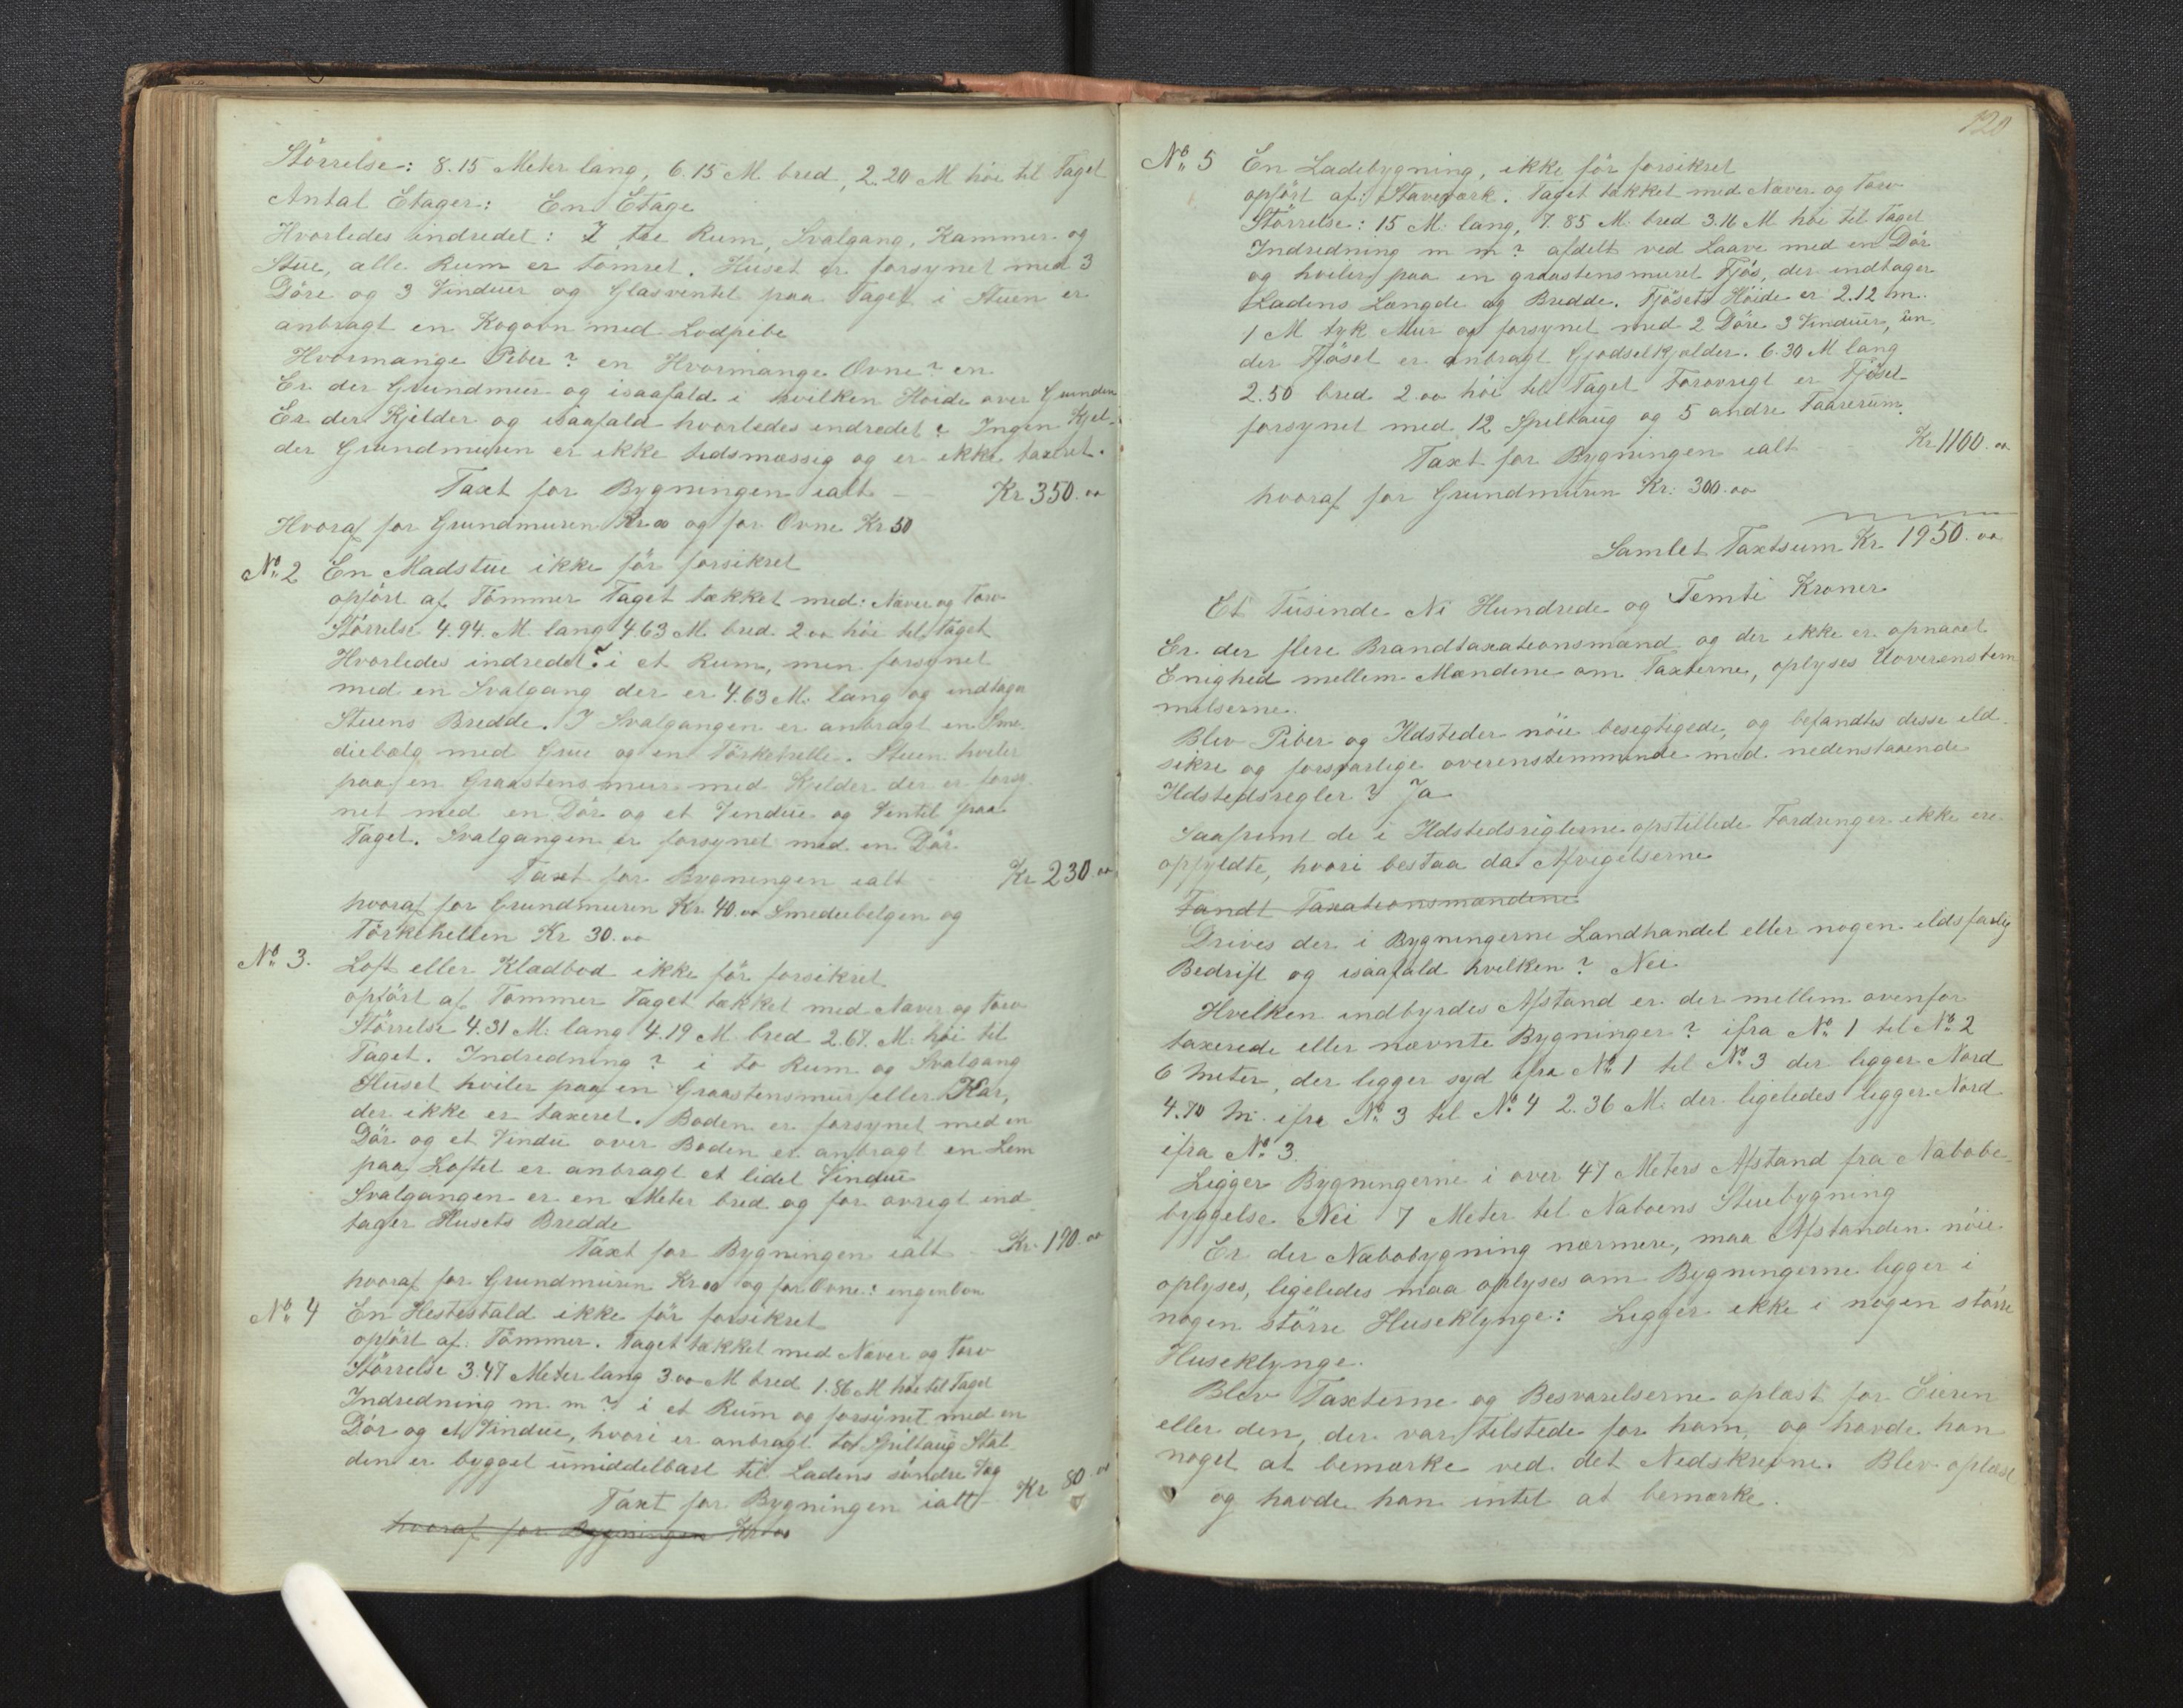 Störrelse: 8.15 Meter lang, 6.15 M bred, 2.20 M höi til Taget
Antal Etager: En Etage
Hvorledes indredet: I tre Rum, Svalgang, Kammer og
Stue, alle Rum er tömret. Huset er forsynet med 3
Döre og 3 Vinduer og Glasventil paa Taget i Stuen er
anbragt en Kogovn med Lodpibe
Hvormange Piber? en Hvormange Ovne? en
Er der Grundmur og isaafald i hvilken Höide over Grunden
Er der Kjelder og isaafald hvorledes indredet? Ingen Kjel-
der Grundmuren er ikke tidsmæssig og er ikke taxeret.
Taxt for Bygningen ialt - - Kr 350.00
Hvoraf for Grundmuren Kr 00 og for Ovne Kr 50
No 2 En Madstue ikke för forsikret
opfört af Tömmer Taget tækket med: Næver og Torv
Störrelse 4.94. M. lang 4.63 M. bred 2.00 höi til Taget
Hvorledes indredet? i et Rum, men forsynet
med en Svalgang der er 4.63 M. lang og indtager
Stuens Bredde. I Svalgangen er anbragt en Sme-
diebælg med Grue og en Törkehelle. Stuen hviler
paa en Graastensmur med Kjelder der er forsy-
net med en Dör og et Vindue og Ventil paa
Taget. Svalgangen er forsynet med en Dör
Taxt for Bygningen ialt - Kr 230.00
hvoraf for Grundmuren Kr 40.00 Smediebelgen og
Törkehellen Kr 30.00
No 3. Loft eller Klædbod ikke för forsikret
opfört af Tömmer Taget tækket med Næver og Torv
Störrelse 4.31 M. lang 4.19 M bred 2.67. M. höi til
Taget. Indredning? i to Rum og Svalgang
Huset hviler paa en Graastensmur eller Kar,
der ikke er taxeret. Boden er forsynet med en
Dör og et Vindu over Boden er anbragt en Lem
paa Loftet er anbragt et lidet Vindue
Svalgangen er en Meter bred og for övrigt ind-
tager Husets Bredde
Taxt for Bygningen ialt - Kr. 190.00
hvoraf for Grundmuren Kr 00 og for Ovne: ingen Ovn
No 4 En Hestestald ikke för forsikret
opfört af: Tömmer. Taget tækket med Næver og Torv
Störrelse 3.47 Meter lang 3.00 M bred 1.86 M höi til Taget
Indredning m. m? i et Rum og forsynet med en
Dör og et Vindue, hvori er anbragt to Spiltaug Stal-
den er bygget umiddelbart til Ladens söndre Væg
Taxt for Bygningen ialt - Kr 80.00
hvoraf for Bygningen Kr 00
120
No 5 En Ladebygning, ikke för forsikret
opfört af: Staveværk. Taget tækket med Næver og Torv
Störrelse: 15 M. lang, 7.85 M. bred 3.16 M höi til Taget
Indredning m m? afdelt ved Laave med en Dör
og hviler paa en graastensmuret Fjös, der indtager
Ladens Længde og Bredde. Fjösets Höide er 2.12 m.
1 M tyk Mur og forsynet med 2 Döre 3 Vinduer, un-
der Fjöset er anbragt Gjödselkjælder. 6.30 M lang
2.50 bred 2.00 höi til Taget Forövrigt er Fjöset
forsynet med 12 Spiltaug og 5 andre Faarerum.
Taxt for Bygningen ialt - Kr 1100.00
hvoraf for Grundmuren Kr: 300.00
Samlet Taxtsum Kr 1950.00
Et Tusinde Ni Hundrede og Femti Kroner
Er der flere Brandtaxationsmænd og der ikke er opnaaet
Enighed mellem Mændene om Taxterne, oplyses Uoverenstem
melserne.
Blev Piber og Ildsteder nöie besegtigede, og befandtes disse ild-
sikre og forsvarlige overenstemmende med nedenstaaende
Ildstedsregler? Ja
Saafremt de i Ildstedsreglerne opstillede Fordringer ikke ere
opfyldte, hvori bestaa da Afvigelserne
Fandt Taxationsmændene
Drives der i Bygningerne Landhandel eller nogen ildsfarlig
Bedrift og isaafald hvilken? Nei
Hvilken indbyrdes Afstand er der mellem ovenfor
taxerede eller nævnte Bygninger? ifra No 1 til No 2
6 Meter, der ligger syd ifra No 1 til No 3 der ligger Nord
4.70 M. ifra No 3 til No 4 2.36 M. der ligeledes ligger Nord
ifra No 3.
Ligger Bygningerne i over 47 Meters Afstand fra Nabobe-
byggelse Nei 7 Meter til Naboens Stuebygning
Er der Nabobygning nærmere, maa Afstanden nöie
oplyses, ligeledes maa oplyses om Bygningerne ligger i
nogen större Huseklynge: Ligger ikke i nogen större
Huseklynge.
Blev Taxterne og Besvarelserne oplæst for Eieren
eller den, der var tilstede for ham, og havde han
noget at bemærke ved det Nedskrevne. Blev oplæst
og havde han intet at bemærke.